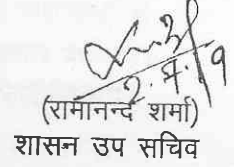 (रामानन्द शर्मा)
शासन उप सचिव